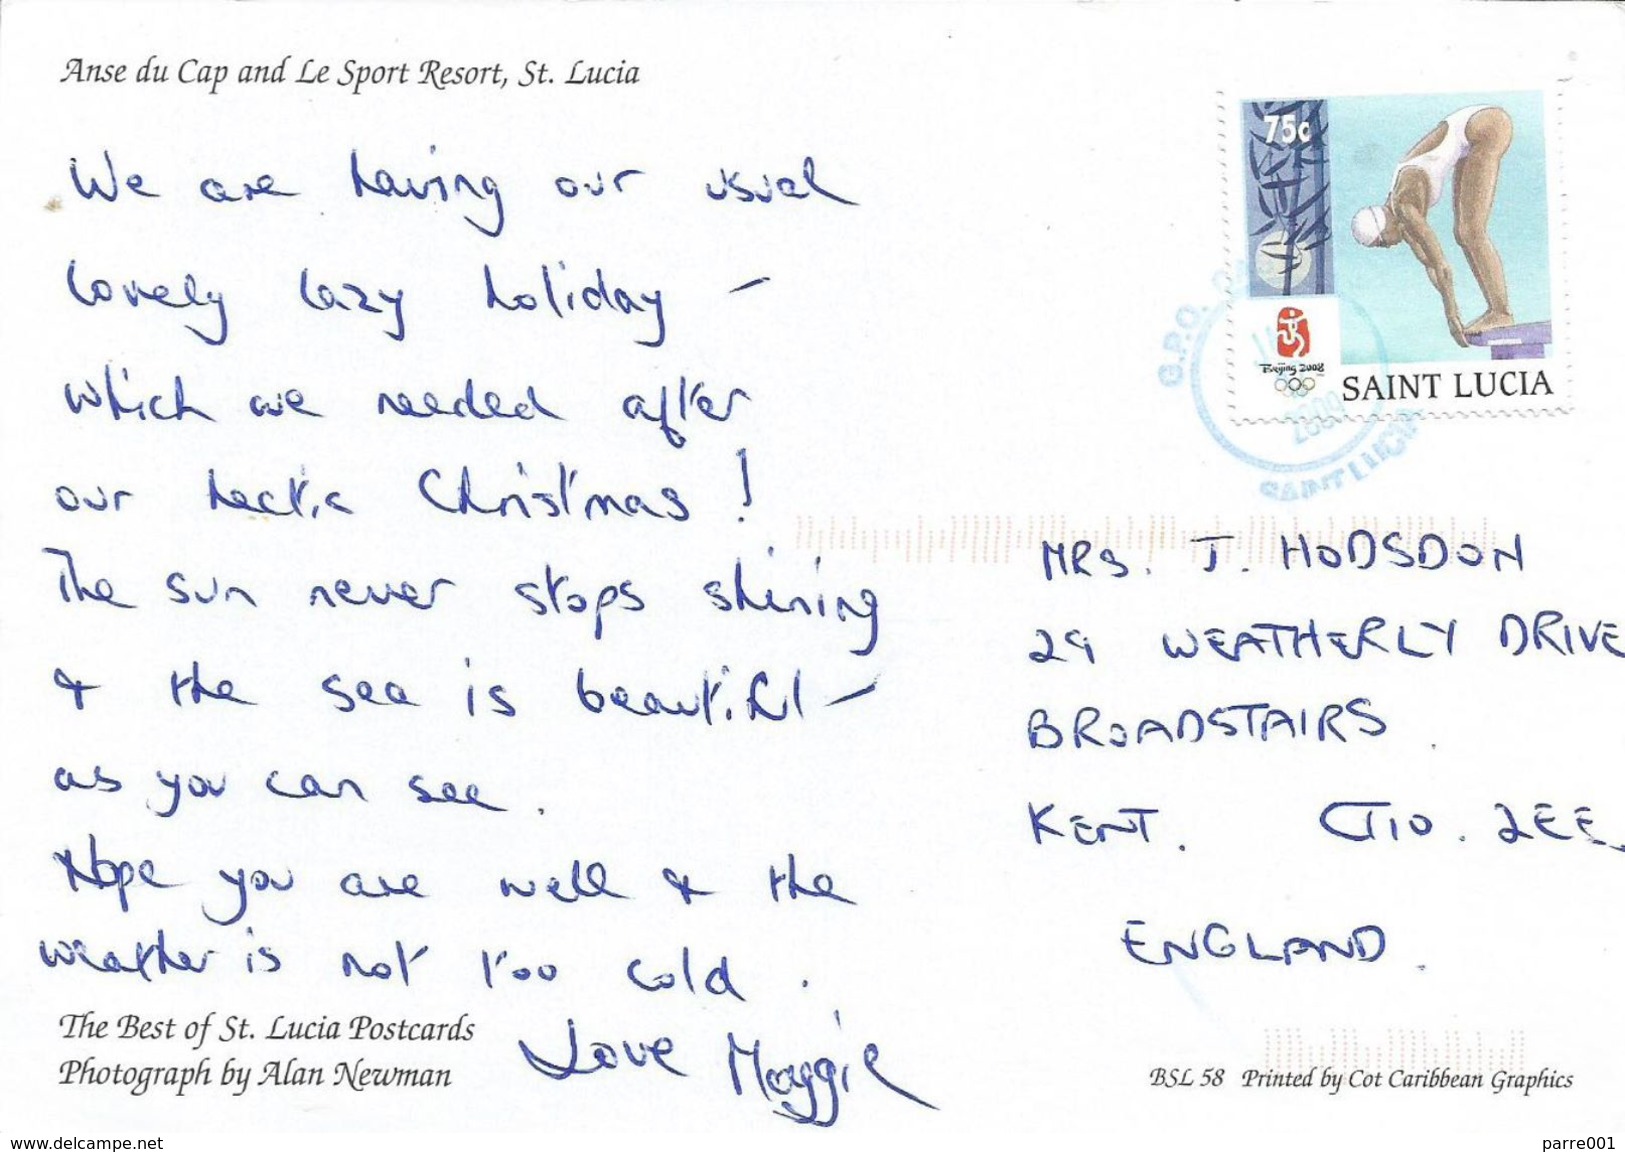 Anse du Cap and Le Sport Resort, St. Lucia
We are having our usual
lovely lazy holiday –
which we needed after
our hectic Christmas!
The sun never stops shining
& the sea is beautiful –
as you can see.
Hope you are well & the
weather is not too cold.
Love Maggie
The Best of St. Lucia Postcards
Photograph by Alan Newman
75c
Beijing 2008
SAINT LUCIA
G.P.O.
SAINT LUCIA
MRS. J. HODSDON
29 WEATHERLY DRIVE
BROADSTAIRS
KENT. CT10. 2EE
ENGLAND.
BSL 58 Printed by Cot Caribbean Graphics
www.delcampe.net
parre001